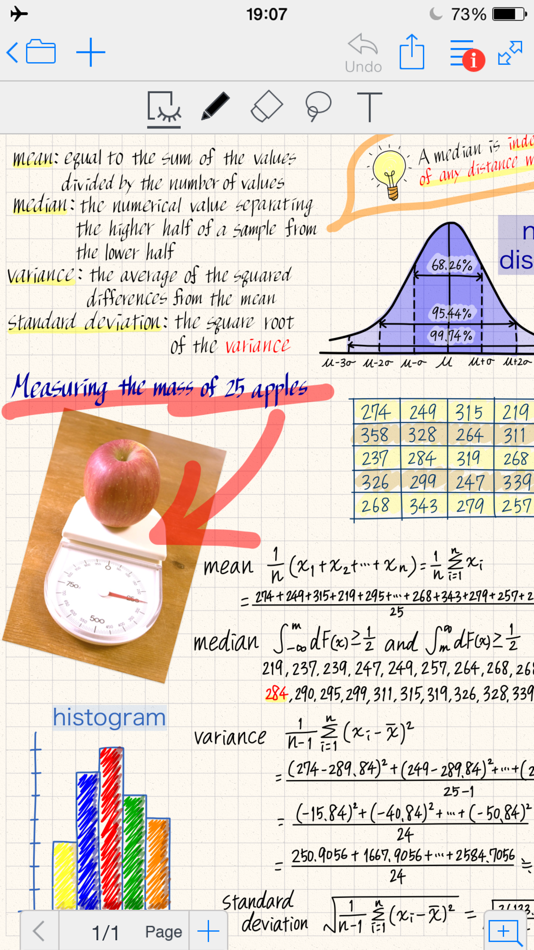 19:07
73%
Undo
T
mean: equal to the sum of the values
divided by the number of values
median: the numerical value separating
the higher half of a sample from
the lower half
variance: the average of the squared
differences from the mean
standard deviation: the square root
of the variance
A median is inde
of any distance m
n
dis
68.26%
95.44%
99.74%
μ-3σ μ-2σ μ-σ μ μ+σ μ+2σ
Measuring the mass of 25 apples
274 249 315 219
358 328 264 311
237 284 319 268
326 299 247 339
268 343 279 257
0
750
500
mean 1/n (x₁+x₂+···+xₙ) = 1/n Σⁿᵢ₌₁ xᵢ
= 274+249+315+219+295+···+268+343+279+257+2
25
median ∫ᵐ₋∞ dF(x) ≥ 1/2 and ∫^∞ₘ dF(x) ≥ 1/2
219, 237, 239, 247, 249, 257, 264, 268, 268
284, 290, 295, 299, 311, 315, 319, 326, 328, 339
histogram
variance 1/(n-1) Σⁿᵢ₌₁ (xᵢ - x̄)²
= (274-289.84)² + (249-289.84)² + ··· + (2
25-1
= (-15.84)² + (-40.84)² + ··· + (-50.84)²
24
= 250.9056 + 1667.9056 + ··· + 2584.7056 ≒
24
standard
deviation √(1/(n-1) Σⁿᵢ₌₁ (xᵢ - x̄)²) =
1/1 Page